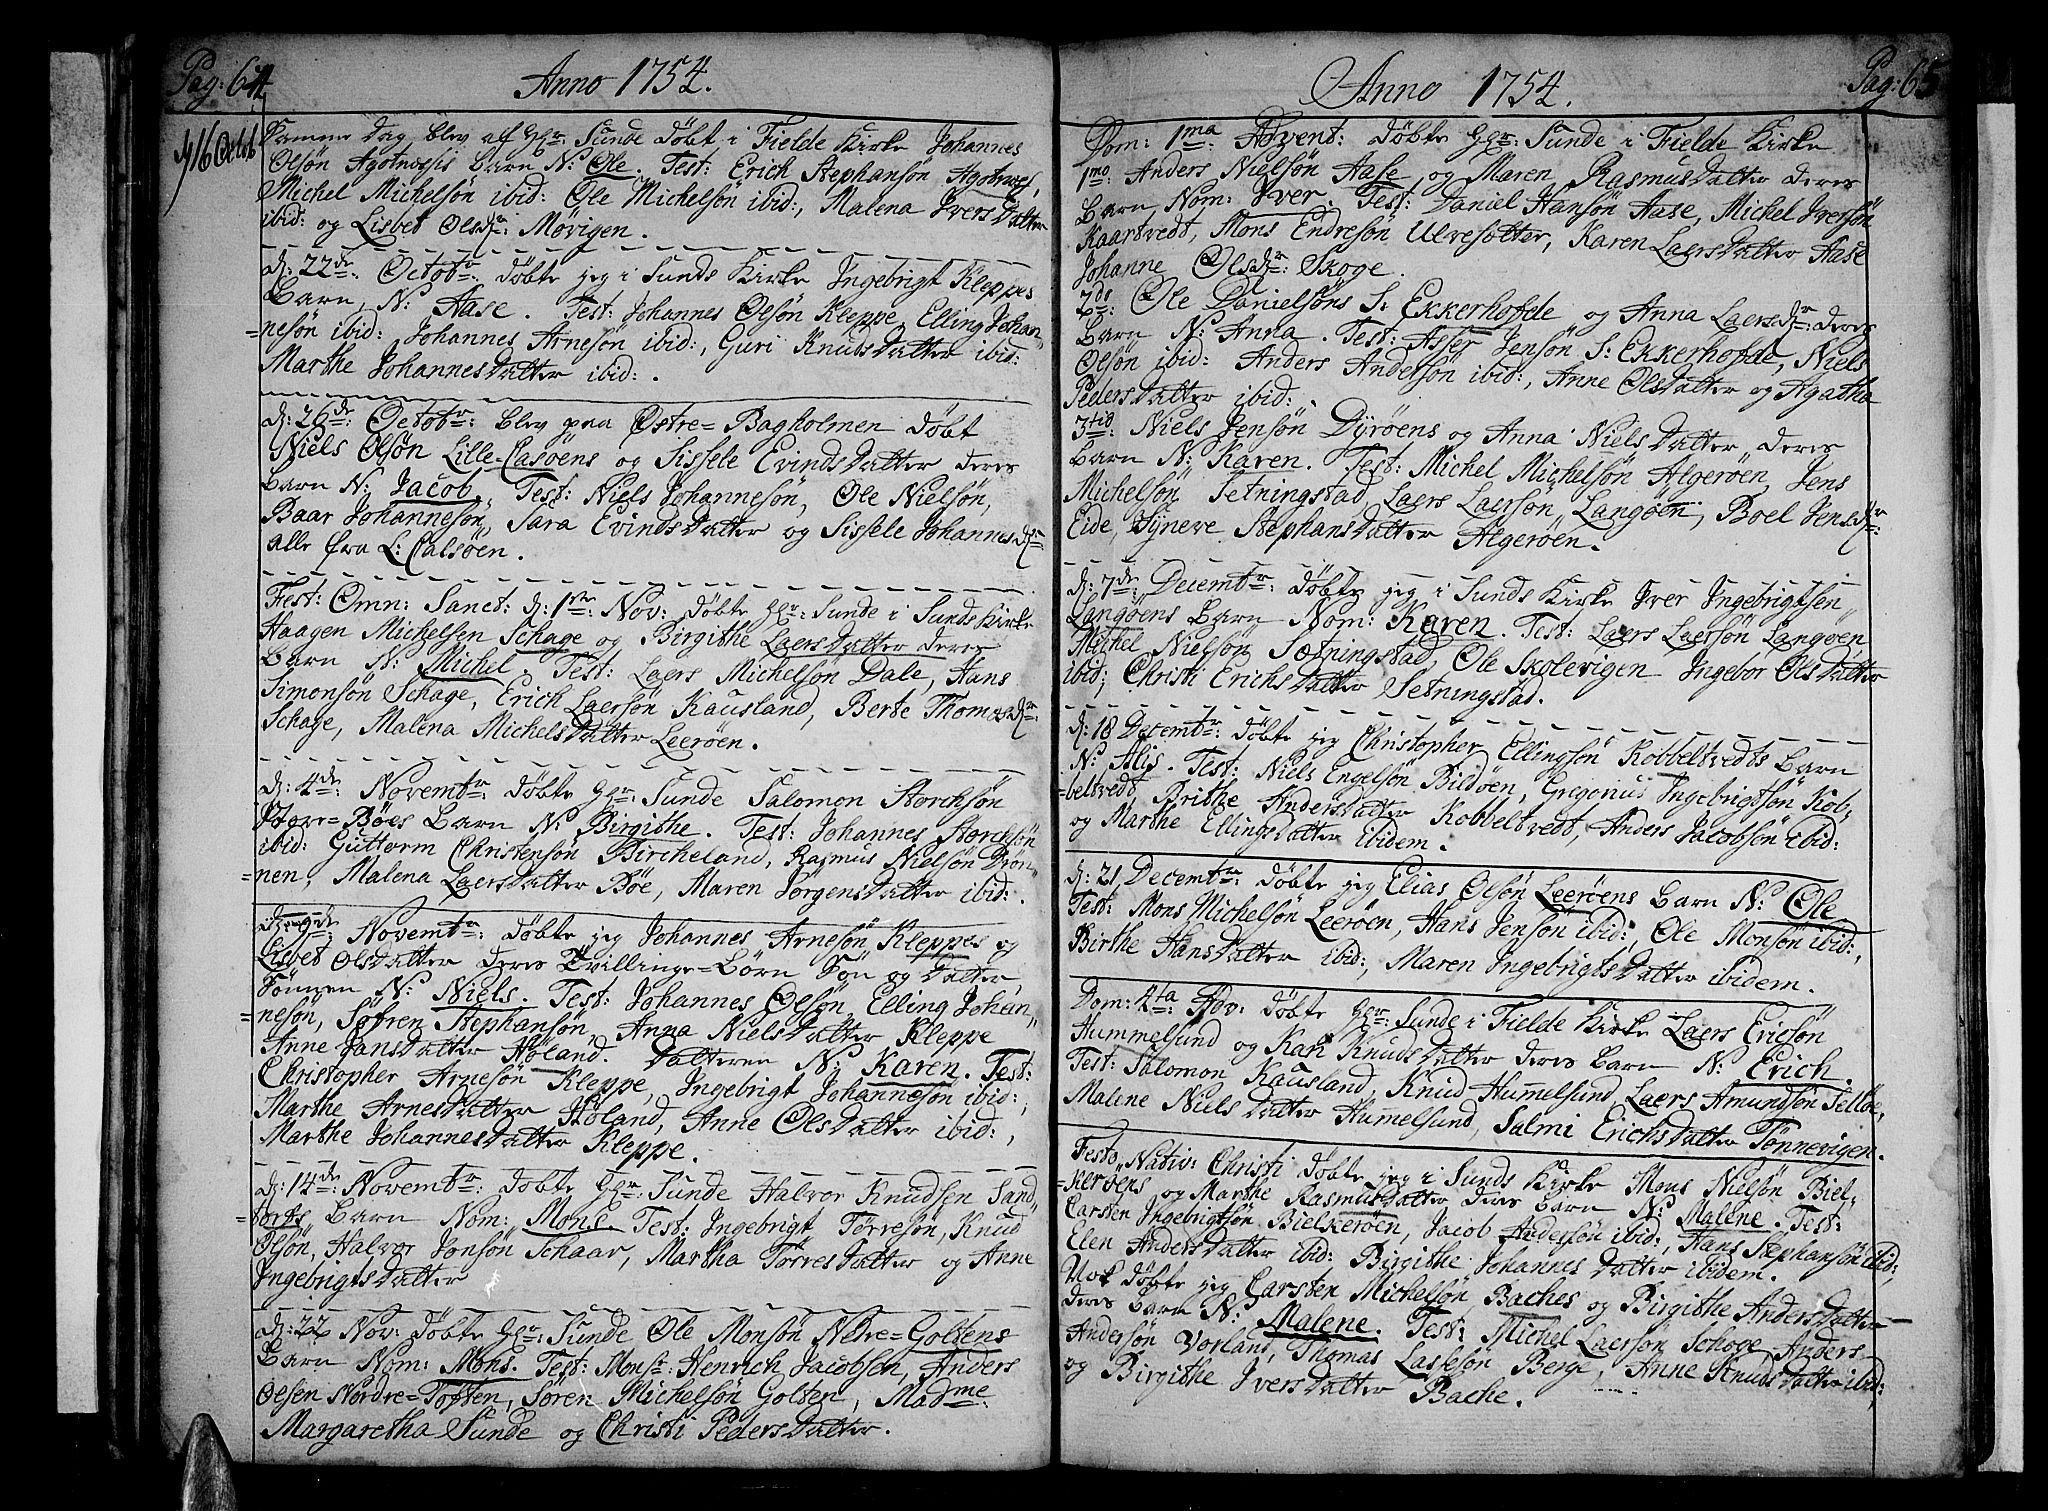 Pag: 64
Anno 1754.
d 16 Octob
Samme Dag blev af Hr: Sunde døbt i Fielde Kirke Johannes
Olsøn Agotnesis Barn N: Ole. Test: Erich Stephansøn Agotnes,
Michel Michelsøn ibid: Ole Michelsøn ibid:, Malena Ivers Datter
ibid: og Lisbet Olsdr: Møvigen.
d: 22de: Octobr: døbte jeg i Sunds Kirke Ingebrigt Kleppes
Barn, N: Aase. Test: Johannes Olsøn Kleppe, Elling Johan
=nesøn ibid: Johannes Arnesøn ibid:, Guri Knuds Datter ibid:
Marthe Johannes Datter ibid:.
d: 26de: Octobr: blev paa Østre=Bagholmen døbt
Niels Olsøn Lille-Calsøens og Sissele Evinds Datter deres
Barn N: Jacob. Test: Niels Johannesøn, Ole Nielsøn,
Baar Johannesøn, Sara Evinds Datter og Sissele Johannesdr:
alle fra L: Calsøen.
Fest: Omn: Sanct: d: 1ste: Nov: døbte Hr: Sunde i Sunds Kirke
Haagen Michelsen Schage og Birgithe Laers Datter deres
Barn N: Michel. Test: Laers Michelsøn Dale, Hans
Simonsøn Schage, Erich Laersøn Kausland, Berte Thomasdr:
Schage, Malena Michels Datter Leerøen.
d: 4de: Novembr: døbte Hr: Sunde Salomon Storchsøn
Store=Bøes Barn N: Birgithe. Test: Johannes Storchsøn
ibid: Guttorm Christensøn Bircheland, Rasmus Nielsøn Drøn
=nen, Malena Laers Datter Bøe, Maren Jørgens Datter ibid:.
d: 9de: Novemtr: døbte jeg Johannes Arnesøn Kleppes og
Lisbet Ols Datter deres Tvillinge=Børn Søn og Datter
Sønnen N: Niels. Test: Johannes Olsøn, Elling Johan
=nesøn, Søfren Stephansøn, Anna Niels Datter Kleppe
Anne Jans Datter Høland. Datteren N: Karen. Test:
Christopher Arnesøn Kleppe, Ingebrigt Johannesøn ibid:,
Marthe Arnes Datter Høland, Anne Ols Datter ibid:,
Marthe Johannes Datter Kleppe.
d: 14de: Novemtr: døbte Hr: Sunde Halvor Knudsen Sand
=torfs Barn Nom: Mons. Test: Ingebrigt Tørresøn, Knud
Olsøn, Halvor Jonsøn Schaar, Martha Tørres Datter og Anne
Ingebrigts Datter
d: 22 Nov: døbte Hr: Sunde Ole Monsøn Nedre=Goltens
Barn Nom: Mons. Test: Monsr: Henrich Jacobsen, Anders
Olsen Nordre=Toften, Søren Michelsøn Golten, Madme
Margaretha Sunde og Christi Peders Datter.
Pag: 65
Anno 1754.
Dom: 1ma: Advent: døbte Hr: Sunde i Fielde Kirke
1mo: Anders Nielsøn Aase og Maren Rasmus Datter deres
Barn Nom: Iver. Test: Daniel Hansøn Aase, Michel Iversøn
Kaartvedt, Mons Endresøn Ulvesætter, Karen Laers Datter Aase
Johanne Olsdr: Skoge.
2do: Ole Danielsøns S: Ekkerhofde og Anna Laersdr: deres
Barn N: Anna. Test: Asser Jensøn S: Ekkerhofde, Niels
Olsøn ibid: Anders Andersøn ibid:, Anne Ols Datter og Agatha
Peders Datter ibid:
3tio: Niels Jensøn Dyrøens og Anna Niels Datter deres
Barn N: Karen. Test: Michel Michelsøn Algerøen, Jens
Michelsøn Setningstad, Laers Laersøn Langøen, Boel Jensdr:
Eide, Synneve Stephans Datter Algerøen.
d: 7de: Decembr: døbte jeg i Sunds Kirke Iver Ingebrigtsen
Langøens Barn Nom: Karen. Test: Laers Laersøn Langøen,
Michel Nielsøn Sætningstad, Ole Skolevigen Ingebor Ols Datter
ibid; Christi Erichs Datter Setningstad.
d: 18 Decemtr: døbte jeg Christopher Ellingsøn Kobbeltvedts Barn
N: Alis. Test: Niels Engelsøn Bildøen, Gregorius Ingebrigtsøn Kob
=beltvedt, Brithe Anders Datter Kobbeltvedt, Anders Jacobsøn ibid:
og Marthe Ellings Datter ibidem.
d: 21 Decemtr: døbte jeg Elias Olsøn Leerøens Barn N: Ole
Test: Mons Michelsøn Leerøen, Hans Jensøn ibid:, Ole Monsøn ibid:,
Birthe Hans Datter ibid:, Maren Ingebrigts Datter ibidem.
Dom: 4ta: Adv: døbte Hr: Sunde i Fielde Kirke Laers Ericsøn
Hummelsund og Kari Knuds Datter deres Barn N: Erich.
Test: Salomon Kausland, Knud Hum̅elsund, Laers Amundsøn Telløe,
Malene Niels Datter Hum̅elsund, Salmi Erichs Datter Tønnevigen.
Festo Nativ: Christi døbte jeg i Sunds Kirke Mons Nielsøn Biel
=kerøens og Marthe Rasmus Datter deres Barn N: Malene. Test:
Carsten Ingebrigtsøn Bielkerøen, Jacob Andersøn ibid:, Hans Stephansøn ibid:,
Elen Anders Datter ibid: Birgithe Johannes Datter ibidem.
Nok døbte jeg Carsten Michelsøn Baches og Birgithe Anders Datter
deres Barn N: Malene. Test: Michel Laersøn Schoge, Anders
Andersøn Vorland, Thomas Lassesøn Berge, Anne Knuds Datter ibid;
og Birgithe Ivers Datter Bache.